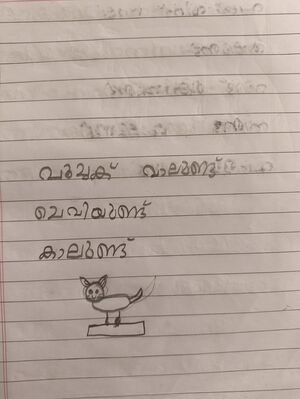 പൂച്ചക് വാലുണ്ട്
ചെവിയുണ്ട്
കാലുണ്ട്